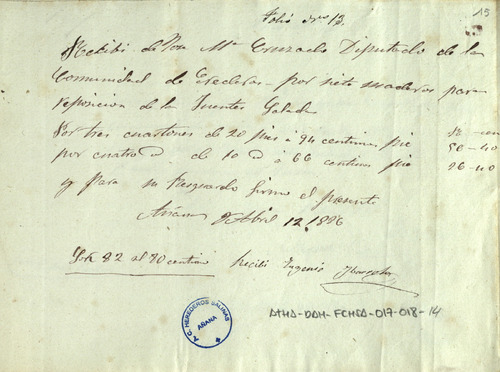 15
Folio nro 12.
Recibi de Don Ma Cruzado Diputado de la
Comunidad de Erederos por siete maderos para
reposicion de la Fuentes Salada
Por tres cuartones de 20 pies á 94 centimos pie
56-40
por cuatro id de 10 id á 66 centimos pie
26-40
y para su resguardo firmo el presente
Añana Abril 12 1886
Son 82 al 80 centimos Recibi Eugenio
A.C. HEREDEROS SALINAS
AÑANA
ATHA-DAH-FCHSA-017-018-14